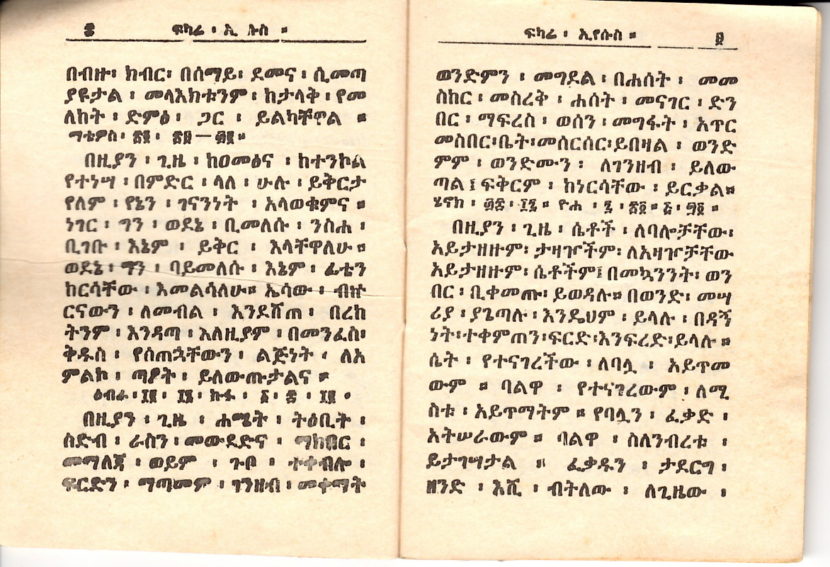 ፰ ፍካሬ ፡ ኢ ሱስ ።
በብዙ፡ ክብር፡ በሰማይ፡ ደመና ፡ ሲመጣ
ያዩታል ፡ መላእክቱንም ፡ ከታላቅ ፡ የመ
ለከት ፡ ድምፅ ፡ ጋር ፡ ይልካቸዋል ።
ማቴዎስ ፡
በዚያን ፡ ጊዜ ፡ ከዐመፅና ፡ ከተንኮል
የተነሣ ፡ በምድር ፡ ላለ ፡ ሁሉ ፡ ይቅርታ
የለም ፡ የኔን ፡ ገናንነት ፡ አላወቁምና ።
ነገር ፡ ግን ፡ ወደኔ ፡ ቢመለሱ ፡ ንስሐ ፡
ቢገቡ ፡ እኔም ፡ ይቅር ፡ እላቸዋለሁ ።
ወደኔ ፡ ግን ፡ ባይመለሱ ፡ እኔም ፡ ፊቴን
ከርሳቸው ፡ እመልሳለሁ። ኤሳው ፡ ብኵ
ርናውን ፡ ለመብል ፡ እንደሸጠ ፡ በረከ
ትንም ፡ እንዳጣ ፡ እለዚያም ፡ በመንፈስ፡
ቅዱስ ፡ የሰጠኋቸውን ፡ ልጅነት ፡ ለአ
ምልኮ ፡ ጣዖት ፡ ይለውጡታልና ።
ዕብራ፡ ፲፪ ፡ ፲፮ ፡ ኩፋ ፡
በዚያን ፡ ጊዜ ፡ ሐሜት ፡ ትዕቢት ፡
ስድብ ፡ ራስን ፡ መውደድና ፡ ማክበር ፡
መማለጃ ፡ ወይም ፡ ጉቦ ፡ ተቀብሎ ፡
ፍርድን ፡ ማጣመም ፡ ገንዘብ ፡ መቀማት
ፍካሬ ፡ ኢየሱስ ። ፱
ወንድምን ፡ መግደል ፡ በሐሰት ፡ መመ
ስከር ፡ መስረቅ ፡ ሐሰት ፡ መናገር ፡ ድን
በር ፡ ማፍረስ ፡ ወሰን ፡ መግፋት ፡ አጥር
መስበር፡ቤት፡መሰርሰር፡ይበዛል ፡ ወንድ
ምም ፡ ወንድሙን ፡ ለገንዘብ ፡ ይለው
ጣል ፤ ፍቅርም ፡ ከነርሳቸው ፡ ይርቃል።
ሄኖክ ፡
በዚያን ፡ ጊዜ ፡ ሴቶች ፡ ለባሎቻቸው፡
አይታዘዙም፡ ታዛዦችም፡ ለአዛዦቻቸው
አይታዘዙም፡ ሴቶችም፤ በመኳንንት፡ ወን
በር ፡ ቢቀመጡ፡ ይወዳሉ። በወንድ፡ መሣ
ሪያ ፡ ያጌጣሉ ፡ እንዲህም ፡ ይላሉ ፡ በዳኝ
ነት፡ተቀምጠን፡ፍርድ፡እንፍረድ፡ይላሉ።
ሴት ፡ የተናገረችው ፡ ለባሏ ፡ አይጥመ
ውም ። ባልዋ ፡ የተናገረውም ፡ ለሚ
ስቱ ፡ አይጥማትም ። የባሏን ፡ ፈቃድ ፡
አትሠራውም ። ባልዋ ፡ ስለንብረቱ ፡
ይታገሣታል ። ፈቃዱን ፡ ታደርግ ፡
ዘንድ ፡ እሺ ፡ ብትለው ፡ ለጊዜው ፡